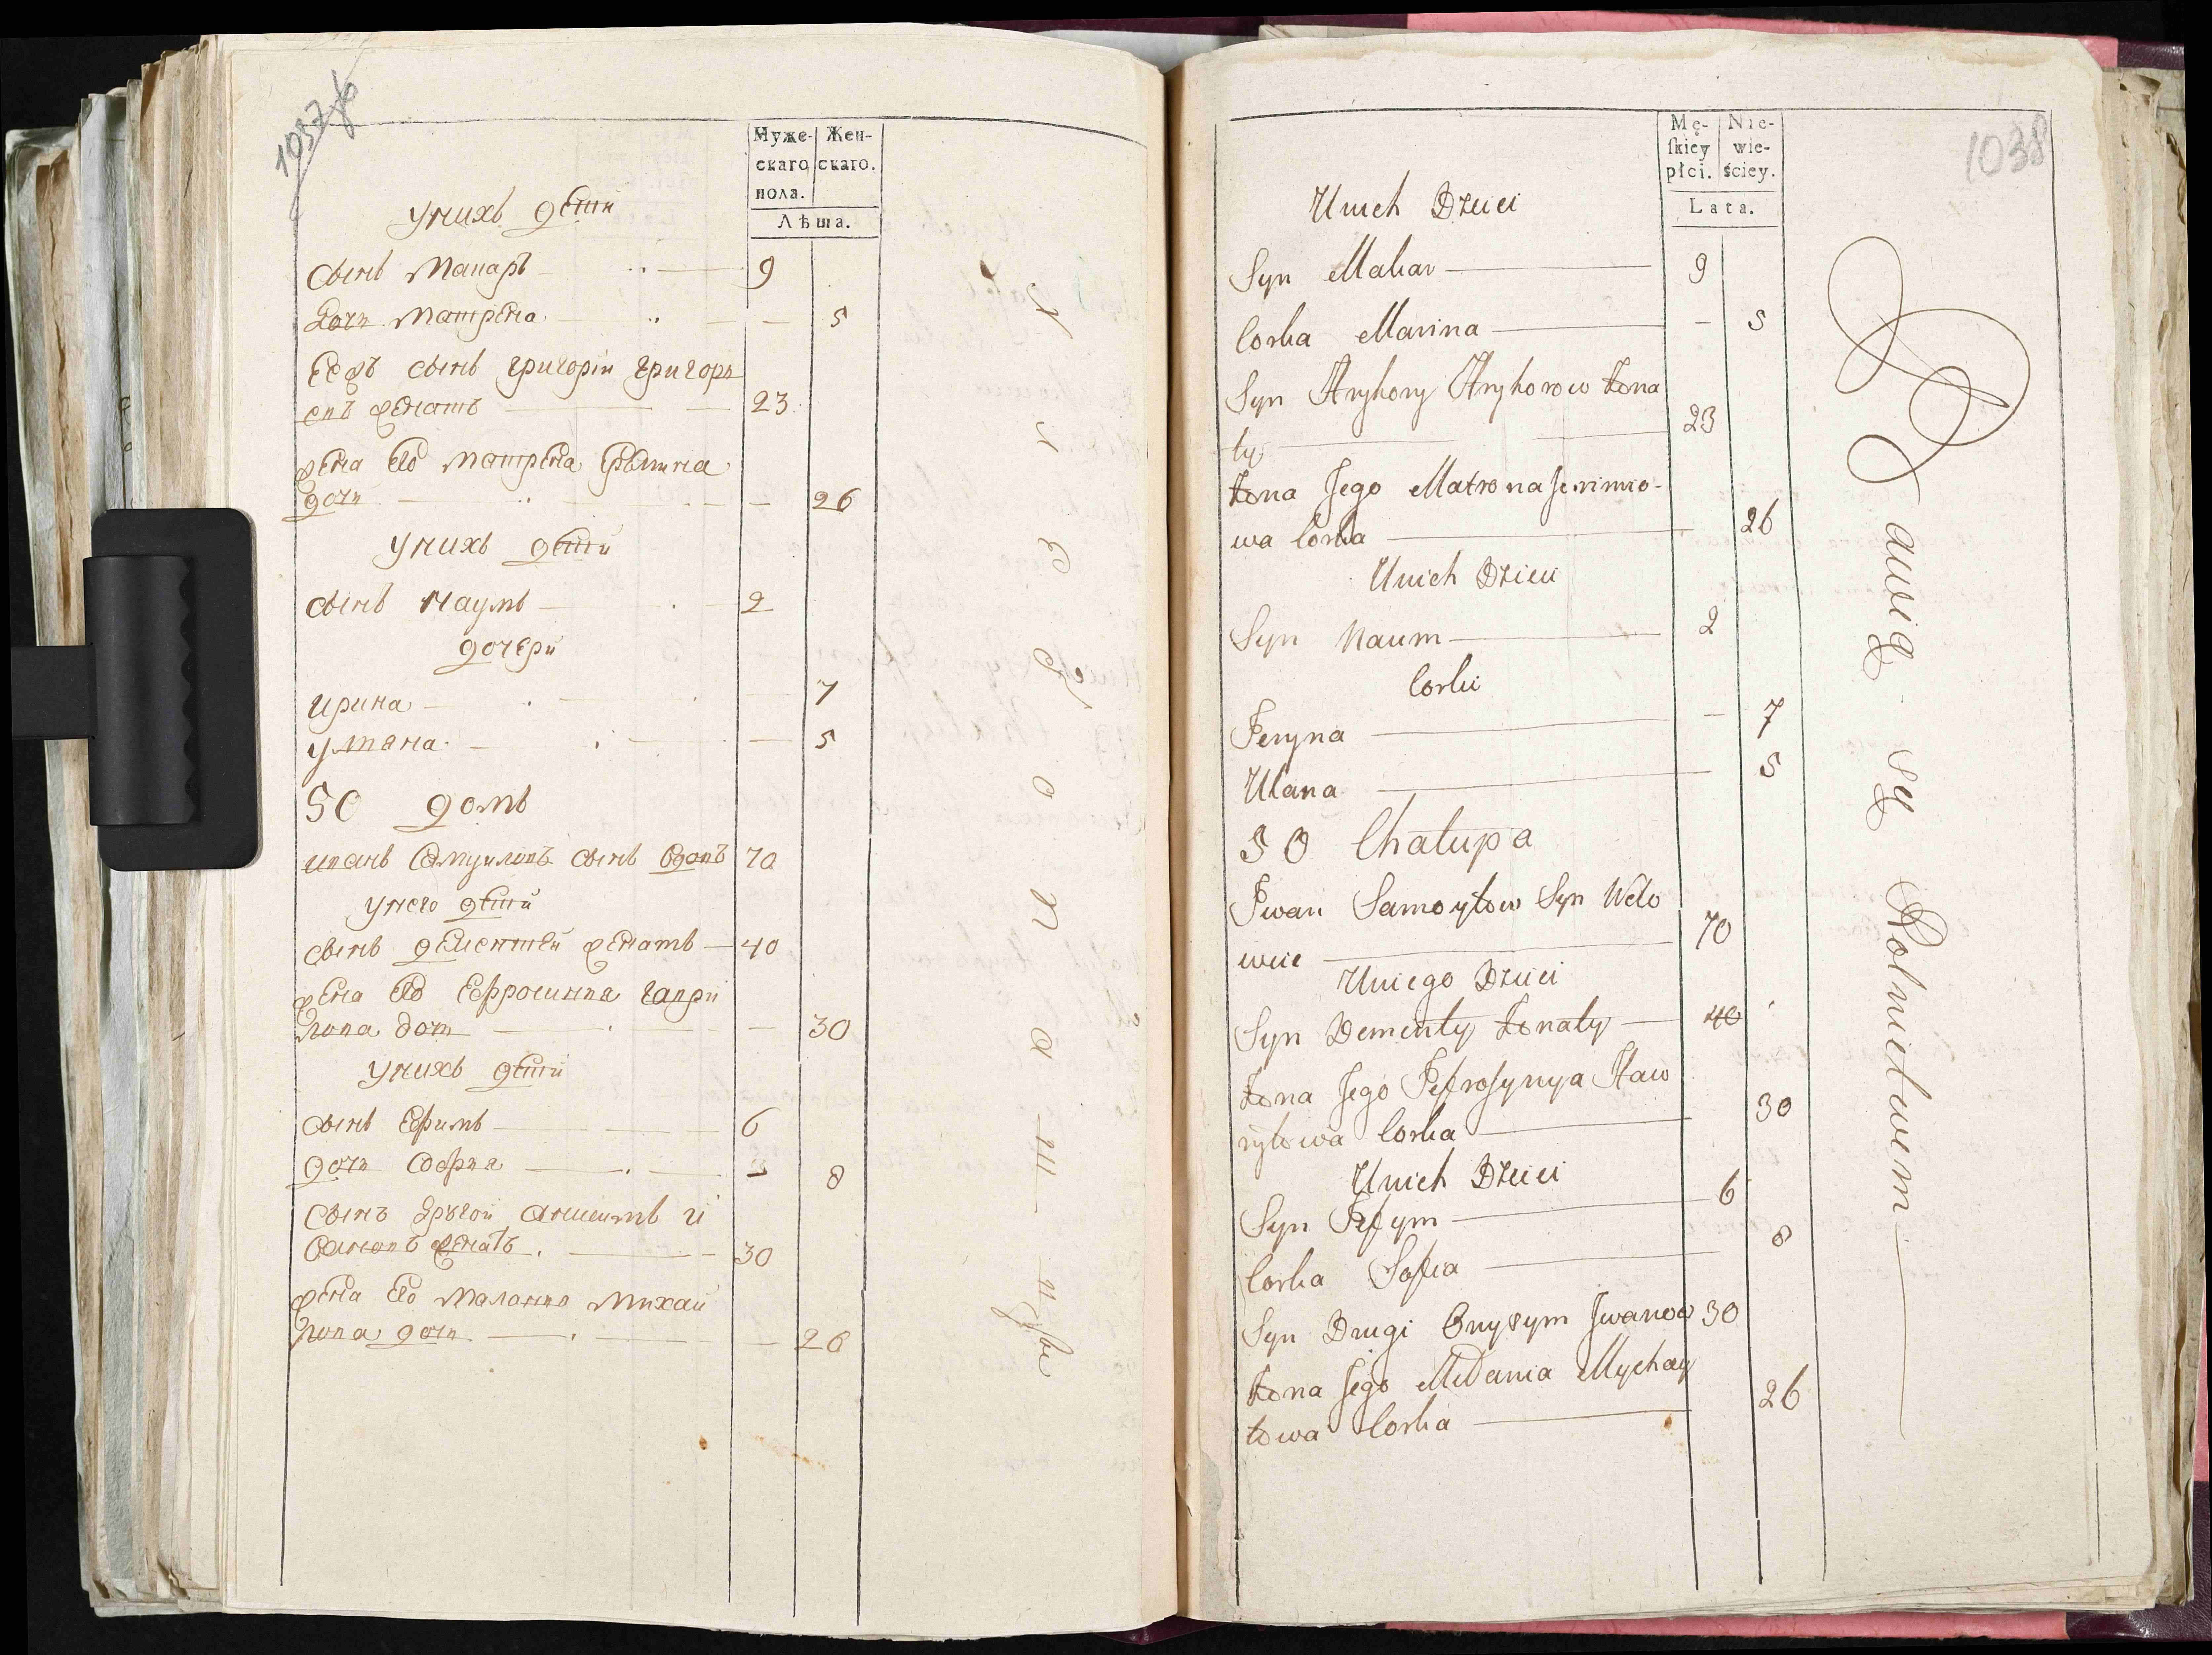 1037 об
Муже-
скаго
пола.
Жен-
скаго.
Лѣта.
Унихъ дѣти
Сынъ Макаръ 9
Дочь Матрена 5
Его сынъ Григорiй Григорь
евъ женатъ 23
Жена Его Матрена
дочь 26
Унихъ дѣти
Сынъ Наумъ 2
дочери
Ирина 7
Улiана 5
50 домъ
Иванъ Самуиловъ сынъ вдовъ 70
Унего дѣти
Сынъ Дементей женатъ 40
Жена Его Ефросинья Гаври
лова дочь 30
Унихъ дѣти
Сынъ Ефимъ 6
дочь Софья 8
Сынъ другой Анисимъ
женатъ 30
Жена Его Маланья Михай
лова дочь 26
1038
Mę-
skiey
płci.
Nie-
wie-
ściey.
Lata.
Unich Dzieci
Syn Makar 9
Corka Marina 5
Syn Hryhory Hryhorow żona
ty 23
żona Jego Matrona Jerimio-
wa Corka 26
Unich Dzieci
Syn Naum 2
Corki
Jeryna 7
Ulana 5
50 Chałupa
Iwan Samoyłow Syn Wdo
wiec 70
Uniego Dzieci
Syn Dementy żonaty 40
żona Jego Jefrosynya Haw
ryłowa Corka 30
Unich Dzieci
Syn Jefym 6
Corka Sofia 8
Syn Drugi Onysym Iwanow 30
żona Jego Mełania Mychay
łowa Corka 26
Bawią się Rolnictwem